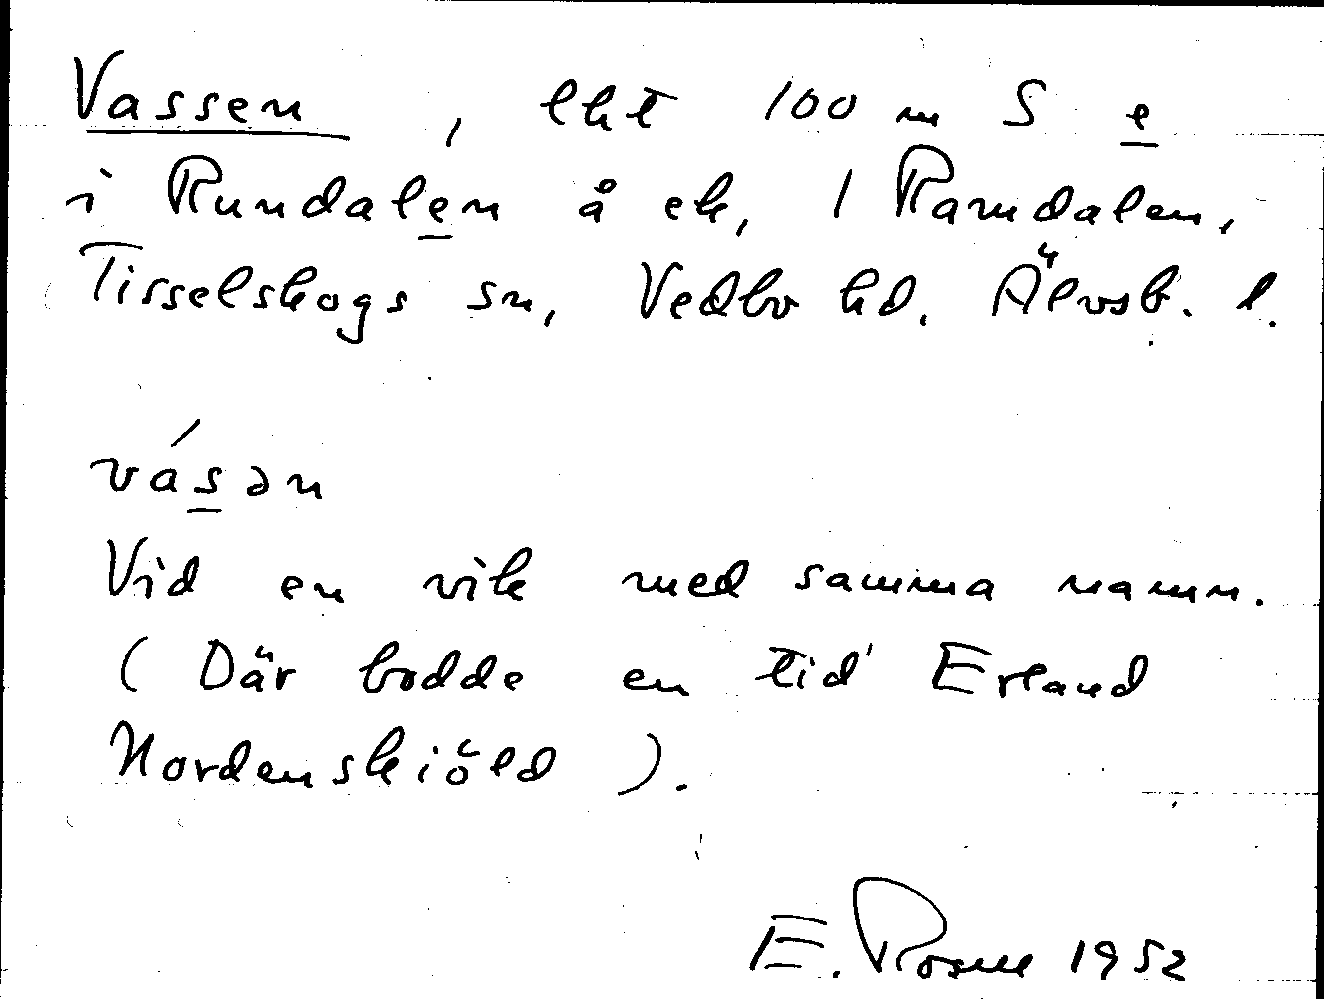 Vassen, lht 100 m S e
i Rundalen å ek, 1 Ramdalen,
Tisselskogs sn, Vedbo hd. Älvsb. l.
vásən
Vid en vik med samma namn.
(Där bodde en tid Erland
Nordenskiöld).
E. Rosell 1952